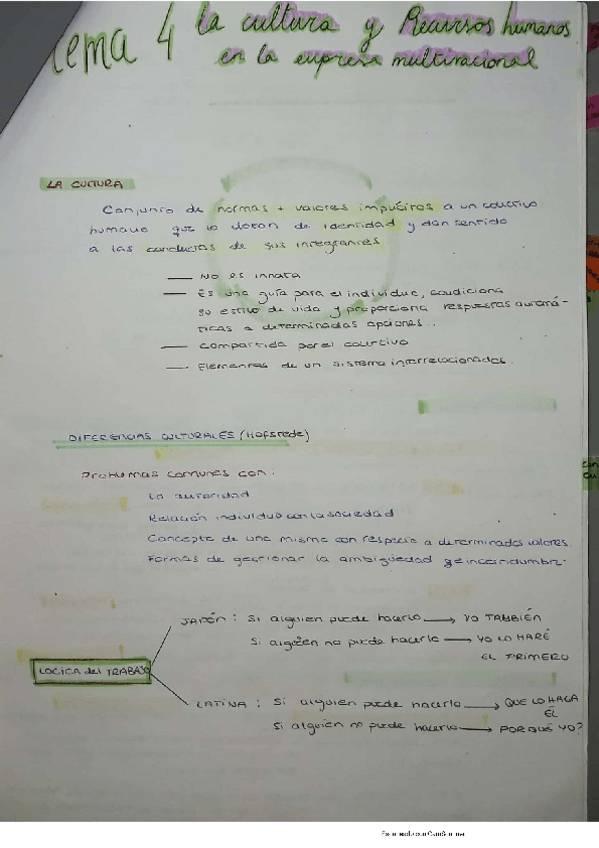 Tema 4 La cultura y Recursos humanos
en la empresa multinacional
LA CULTURA
Conjunto de normas + valores impuestos a un colectivo
humano que lo dotan de identidad y dan sentido
a las conductas de sus integrantes
— No es innata
— Es una guía para el individuo, condiciona
su estilo de vida y proporciona respuestas automá-
ticas a determinadas opciones..
— Compartida por el colectivo
— Elementos de un sistema interrelacionados.
DIFERENCIAS CULTURALES (Hofstede)
Problemas comunes con:
La autoridad
Relación individuo con la sociedad
Concepto de uno mismo con respecto a determinados valores.
Formas de gestionar la ambigüedad e incertidumbre.
JAPÓN: Si alguien puede hacerlo → YO TAMBIÉN
Si alguien no puede hacerlo → YO LO HARÉ
EL PRIMERO
LOGICA del TRABAJO
LATINA: Si alguien puede hacerlo → QUE LO HAGA
ÉL
Si alguien no puede hacerlo → PORQUÉ YO?